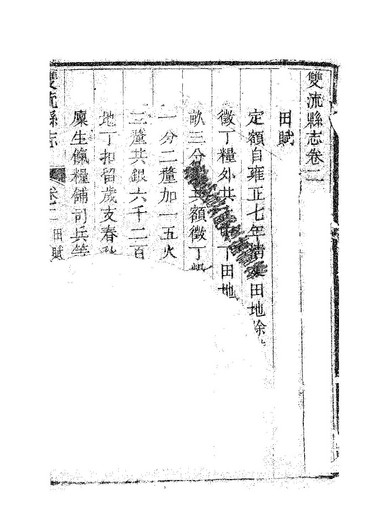 雙流縣志卷二
田賦
定額自雍正七年清田地除
徵丁糧外共丁田地
畝三分共額徵丁
一分二釐加一五火
三釐共銀六千二百
地丁扣留歲支春秋
廩生餼糧鋪司兵等
雙流縣志 卷二 田賦